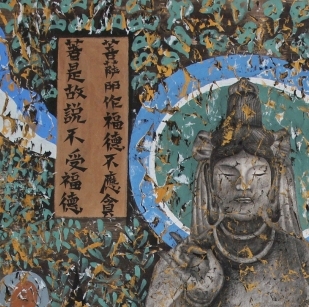 菩萨所作福德不應貪
菩是故説不受福德